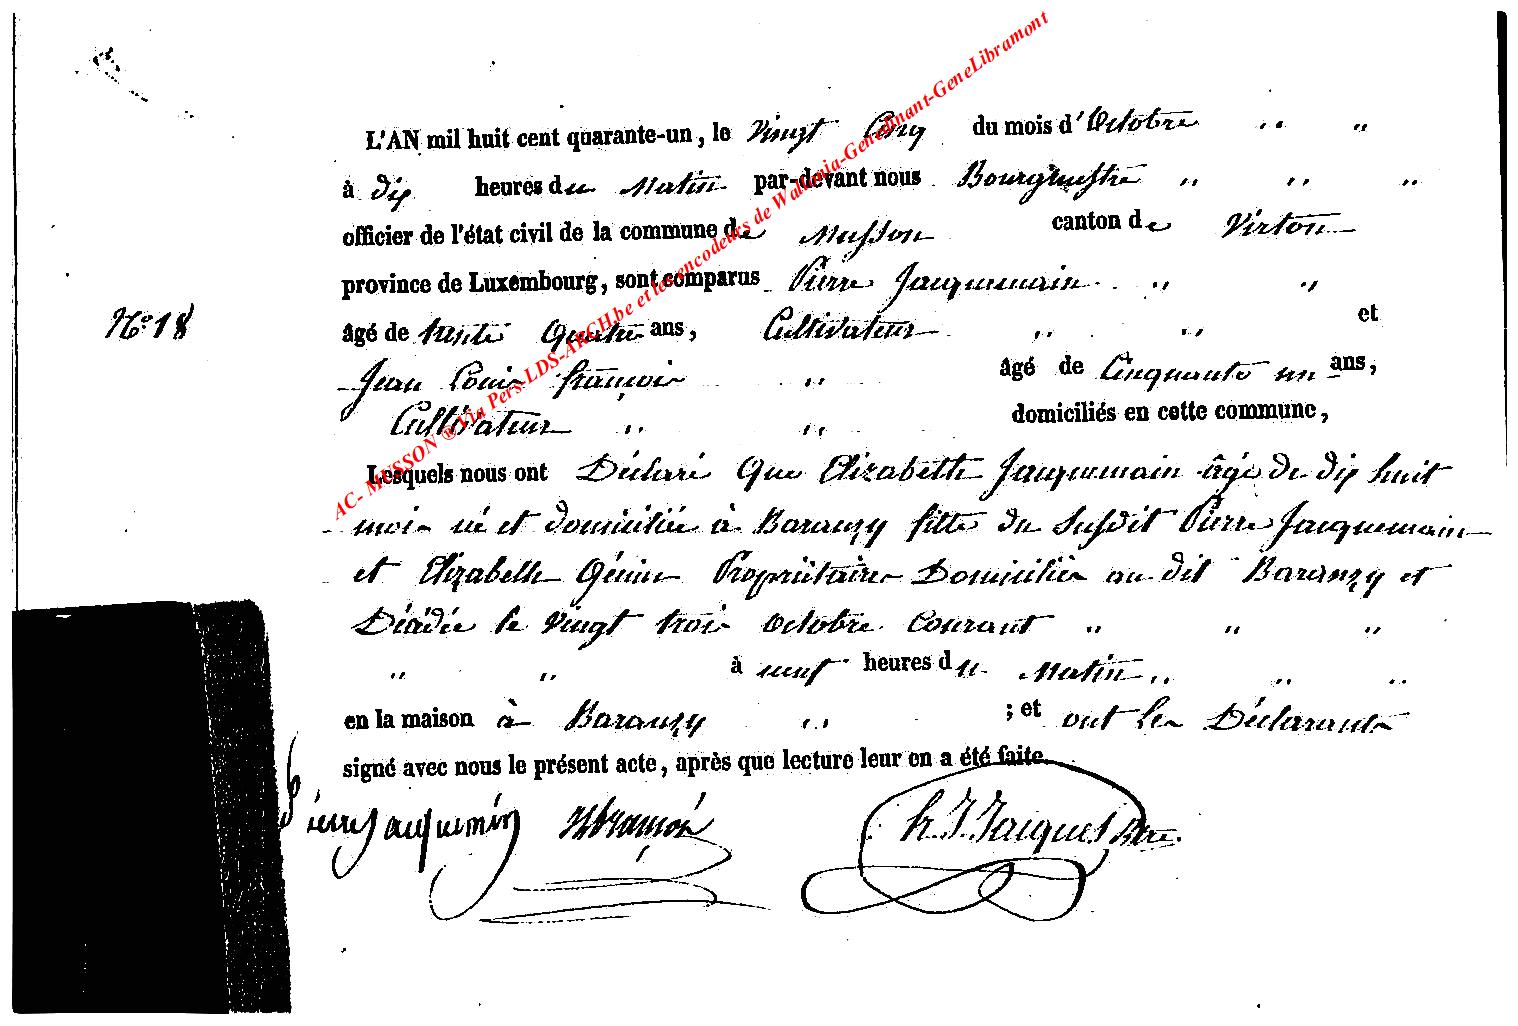 L'AN mil huit cent quarante-un, le Vingt Cinq du mois d'Octobre " "
à dix heures du Matin par-devant nous Bourgmestre " " "
officier de l'état civil de la commune de Musson canton de Virton
province de Luxembourg, sont comparus Pierre Jacquemain " "
N° 18
âgé de trente Quatre ans, Cultivateur " " et
Jean Louis françois " âgé de Cinquante un ans,
Cultivateur " " domiciliés en cette commune,
Lesquels nous ont Déclaré Que Elizabeth Jacquemain âgé de dix huit
mois né et domiciliée à Baranzy fille du Susdit Pierre Jacquemain
et Elizabeth Génin Propriétaires Domiciliés au dit Baranzy et
Décédée le Vingt trois Octobre Courant " " "
" " à neuf heures du Matin " " "
en la maison à Baranzy " ; et ont les Déclarants
signé avec nous le présent acte, après que lecture leur en a été faite.
Pierre Jacquemin h J Jacques Btre.
AC- MUSSON ® Via Pers-LDS-ARCH.be et les encodeurs de Wallonia-Genedinant-GeneLibramont